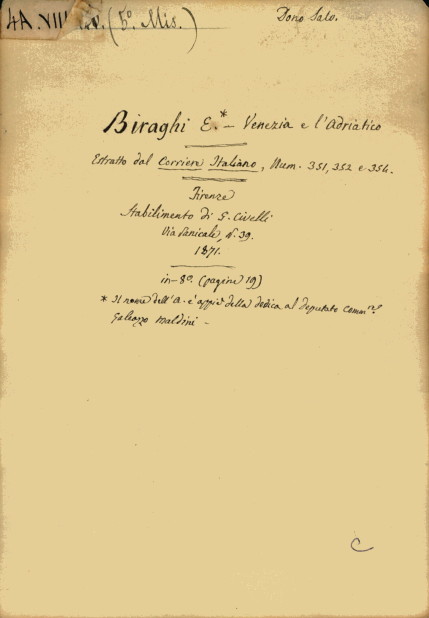 4A. VIII (5º. Mis.)
Dono Salv.
Biraghi E.* – Venezia e l'Adriatico
Estratto dal Corriere Italiano, Num. 351, 352 e 354.
Firenze
Stabilimento di G. Civelli
Via Panicale, N. 39.
1871.
in-8º. (pagine 19)
* Il nome dell'A. è appiè della dedica al deputato Comm.re
Galeazzo Maldini –
C